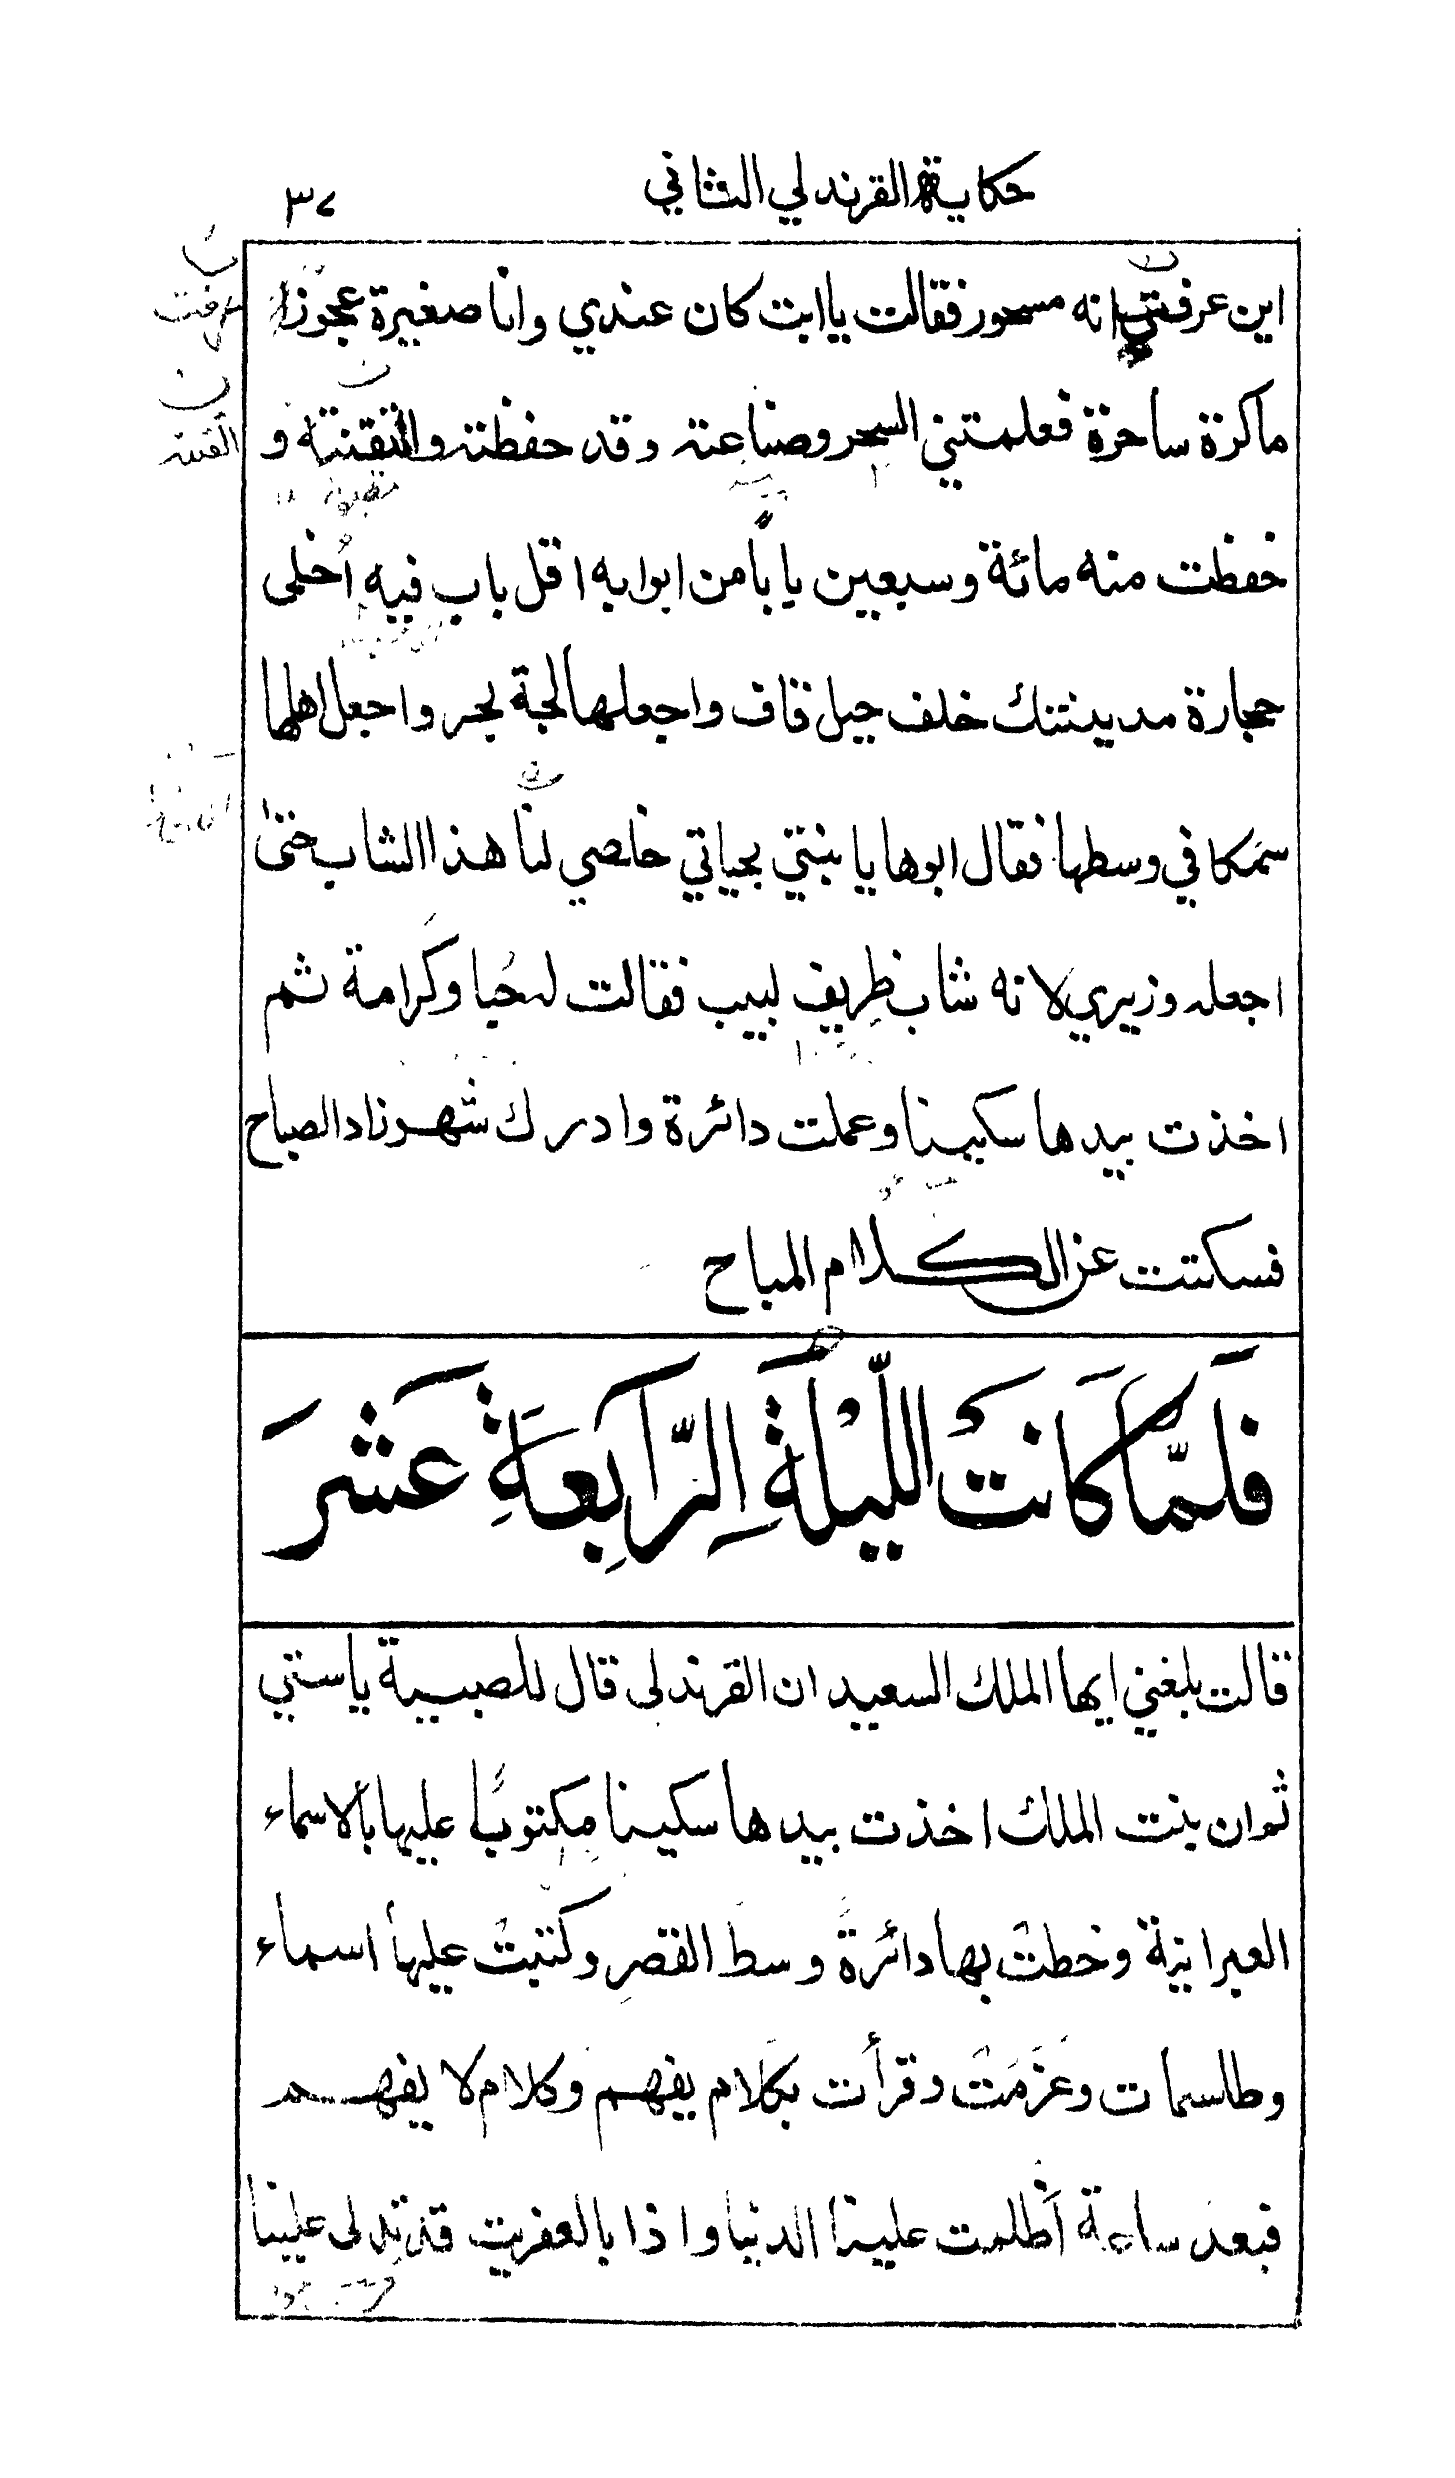 حكاية القرندلي الثاني
٣٧
اين عرفتي انه مسحور فقالت يا ابت كان عندي وانا صغيرة عجوزا
ماكرة ساحرة فعلمتني السحر وصناعته وقد حفظته واتقنته و
حفظت منه مائة وسبعين بابا من ابوابه اقل باب فيه أخلى
حجارة مدينتك خلف جبل قاف واجعلها لجة بحر واجعل اهلها
سمكا في وسطها فقال ابوها يا بنتي بحياتي خلصي لنا هذا الشاب حتى
اجعله وزيري لانه شاب ظريف لبيب فقالت له حبا وكرامة ثم
اخذت بيدها سكينا وعملت دائرة وادرك شهرزاد الصباح
فسكتت عن الكلام المباح
فَلَمَّا كَانَتْ اللَّيْلَةُ الرَّابِعَةَ عَشَرَ
قالت بلغني ايها الملك السعيد ان القرندلى قال للصبية يا ستي
ثم ان بنت الملك اخذت بيدها سكينا مكتوبًا عليها بالاسماء
العبرانية وخطت بها دائرةً وسط القصر وكتبت عليها اسماء
وطلسمات وعَزَمَتْ وقرأت بكلام يفهم وكلام لا يفهم
فبعد ساعة أظلمت علينا الدنيا واذا بالعفريت قد تدلى علينا
عرفت